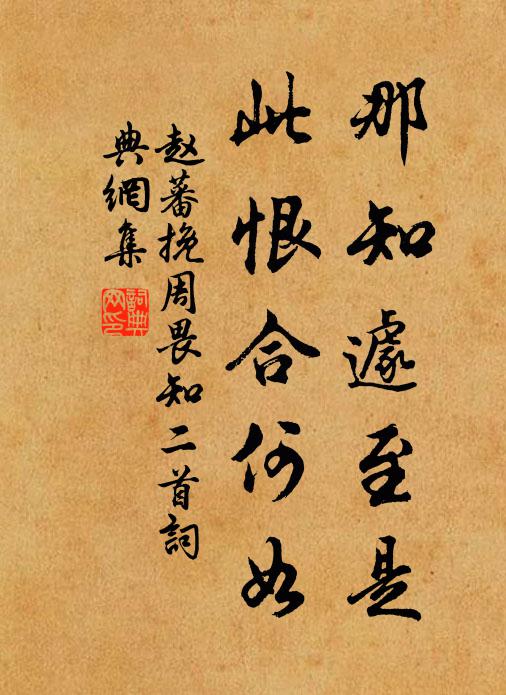 那知遽至是
此恨合何如
赵蕃挽周畏知二首詞
典網集
詞典网印